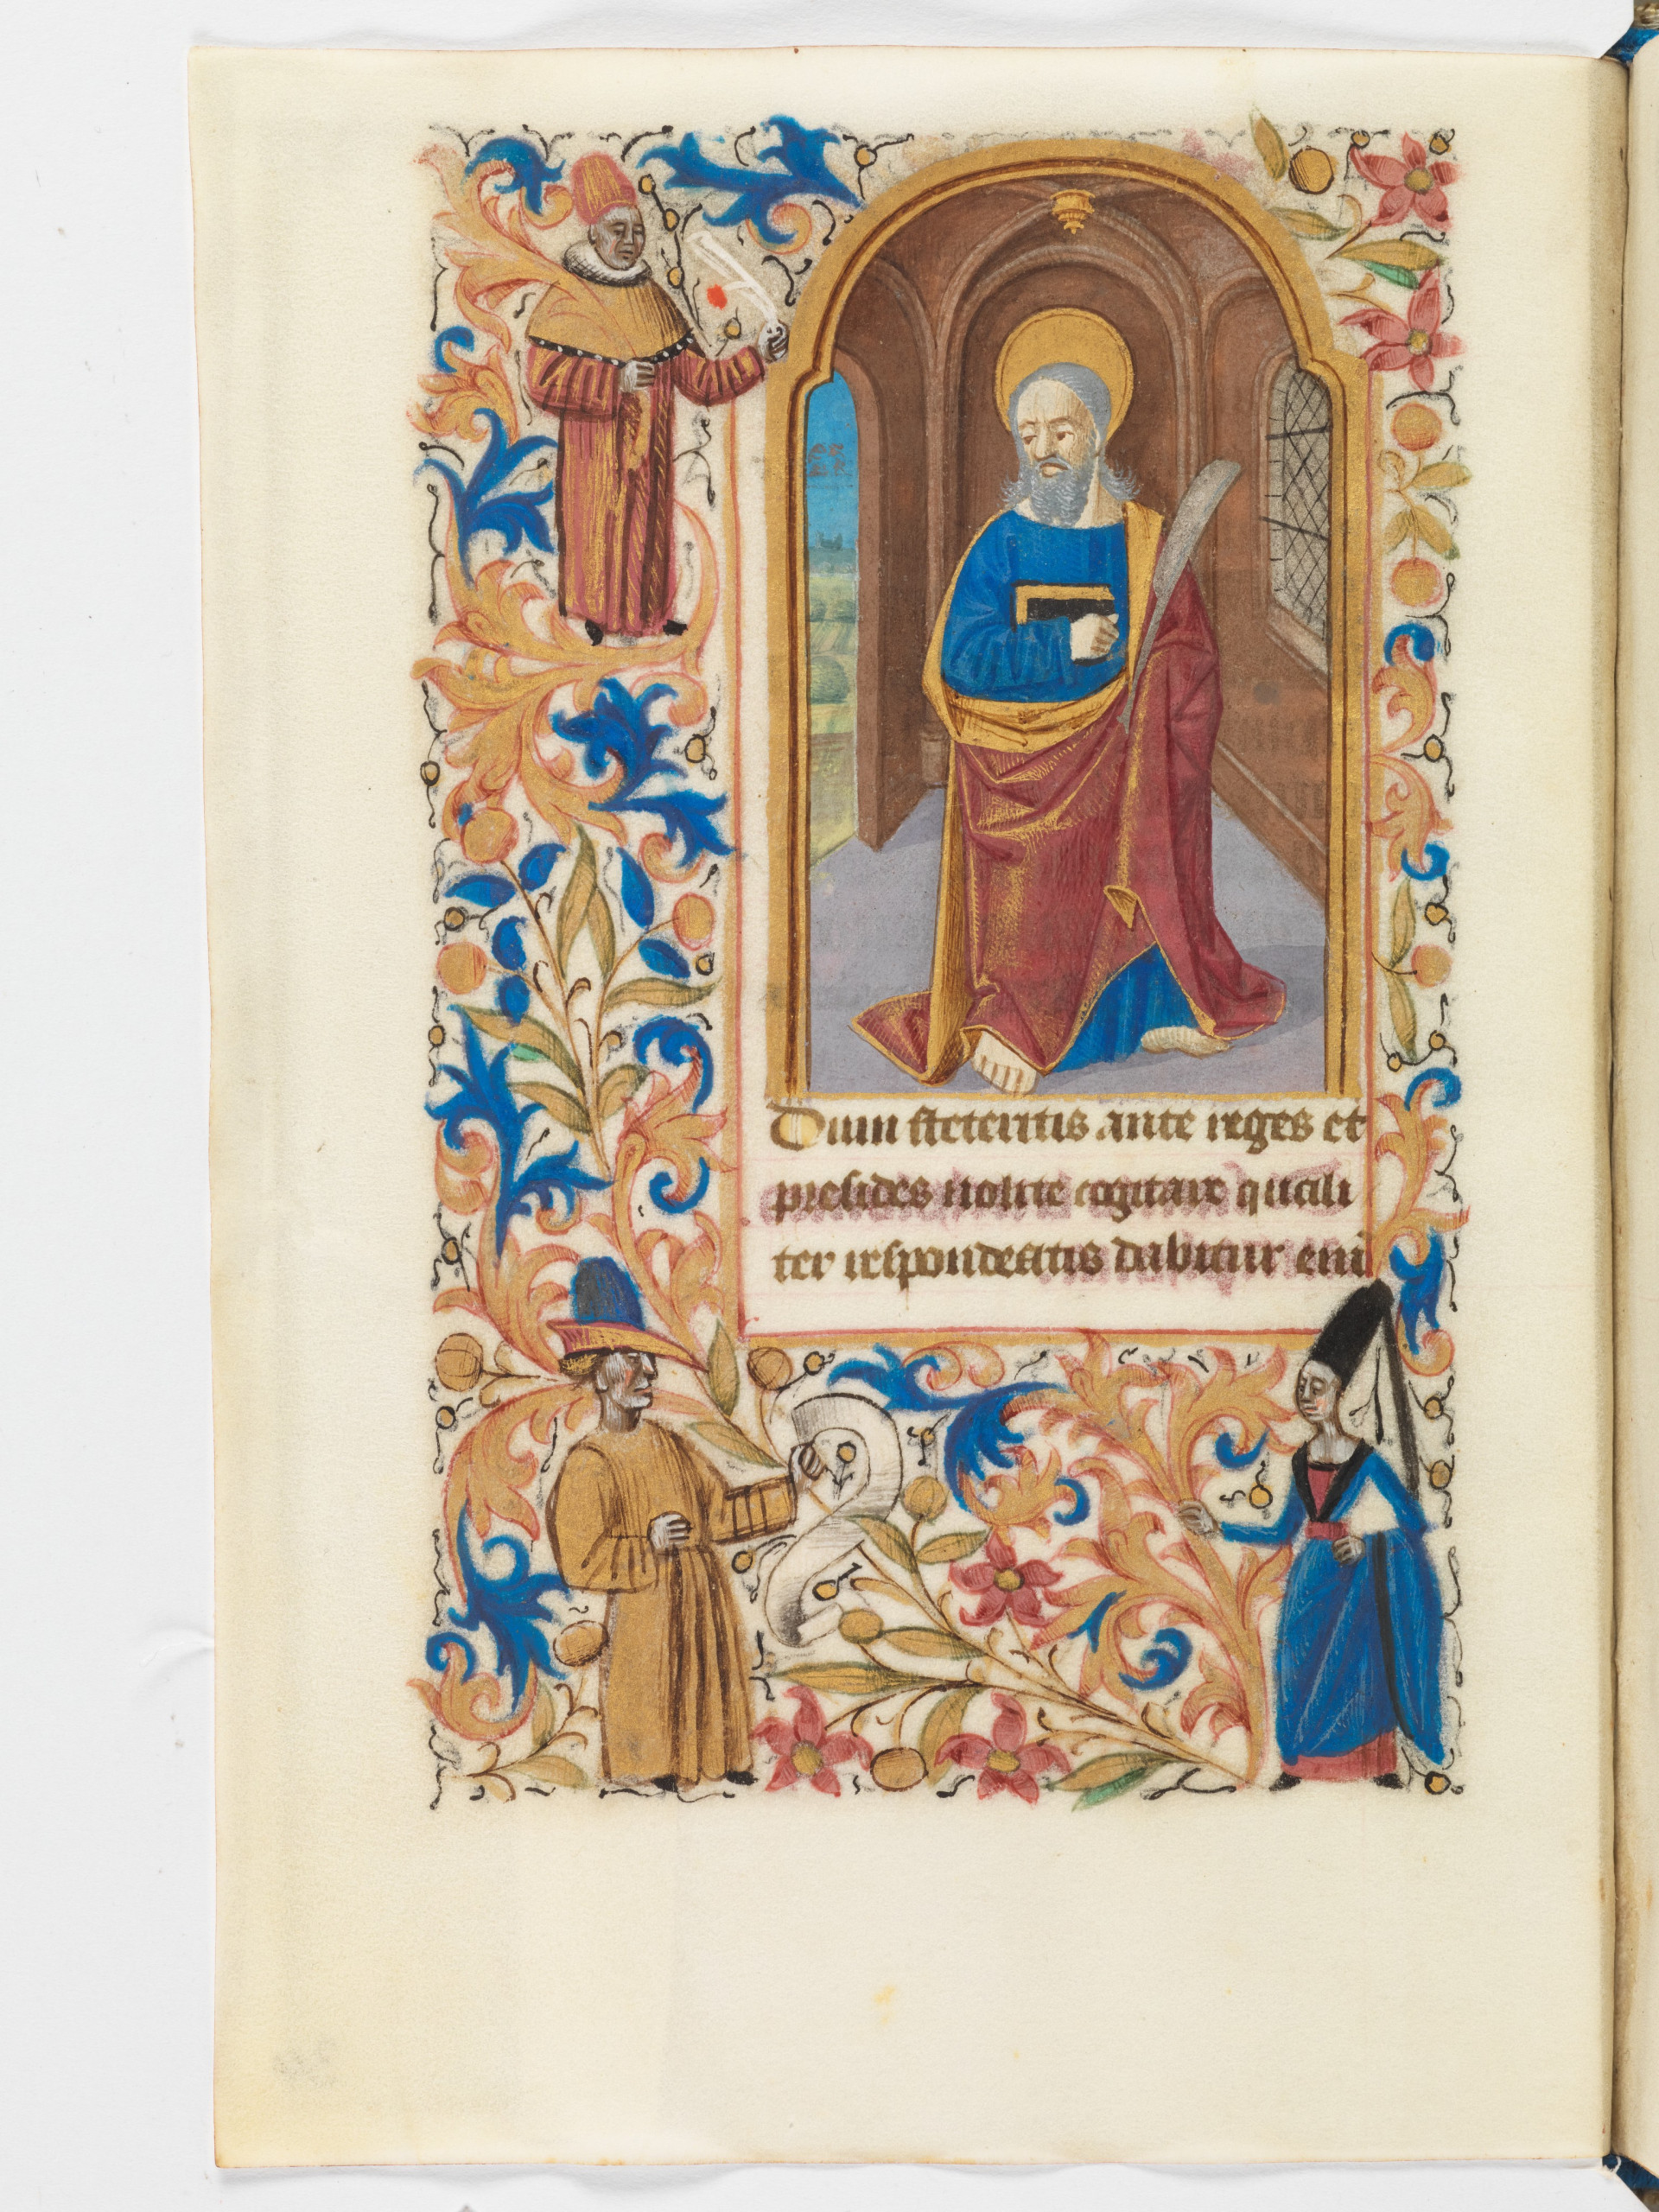 Dum steteritis ante reges et
presides nolite cogitare quali
ter respondeatis dabitur eni